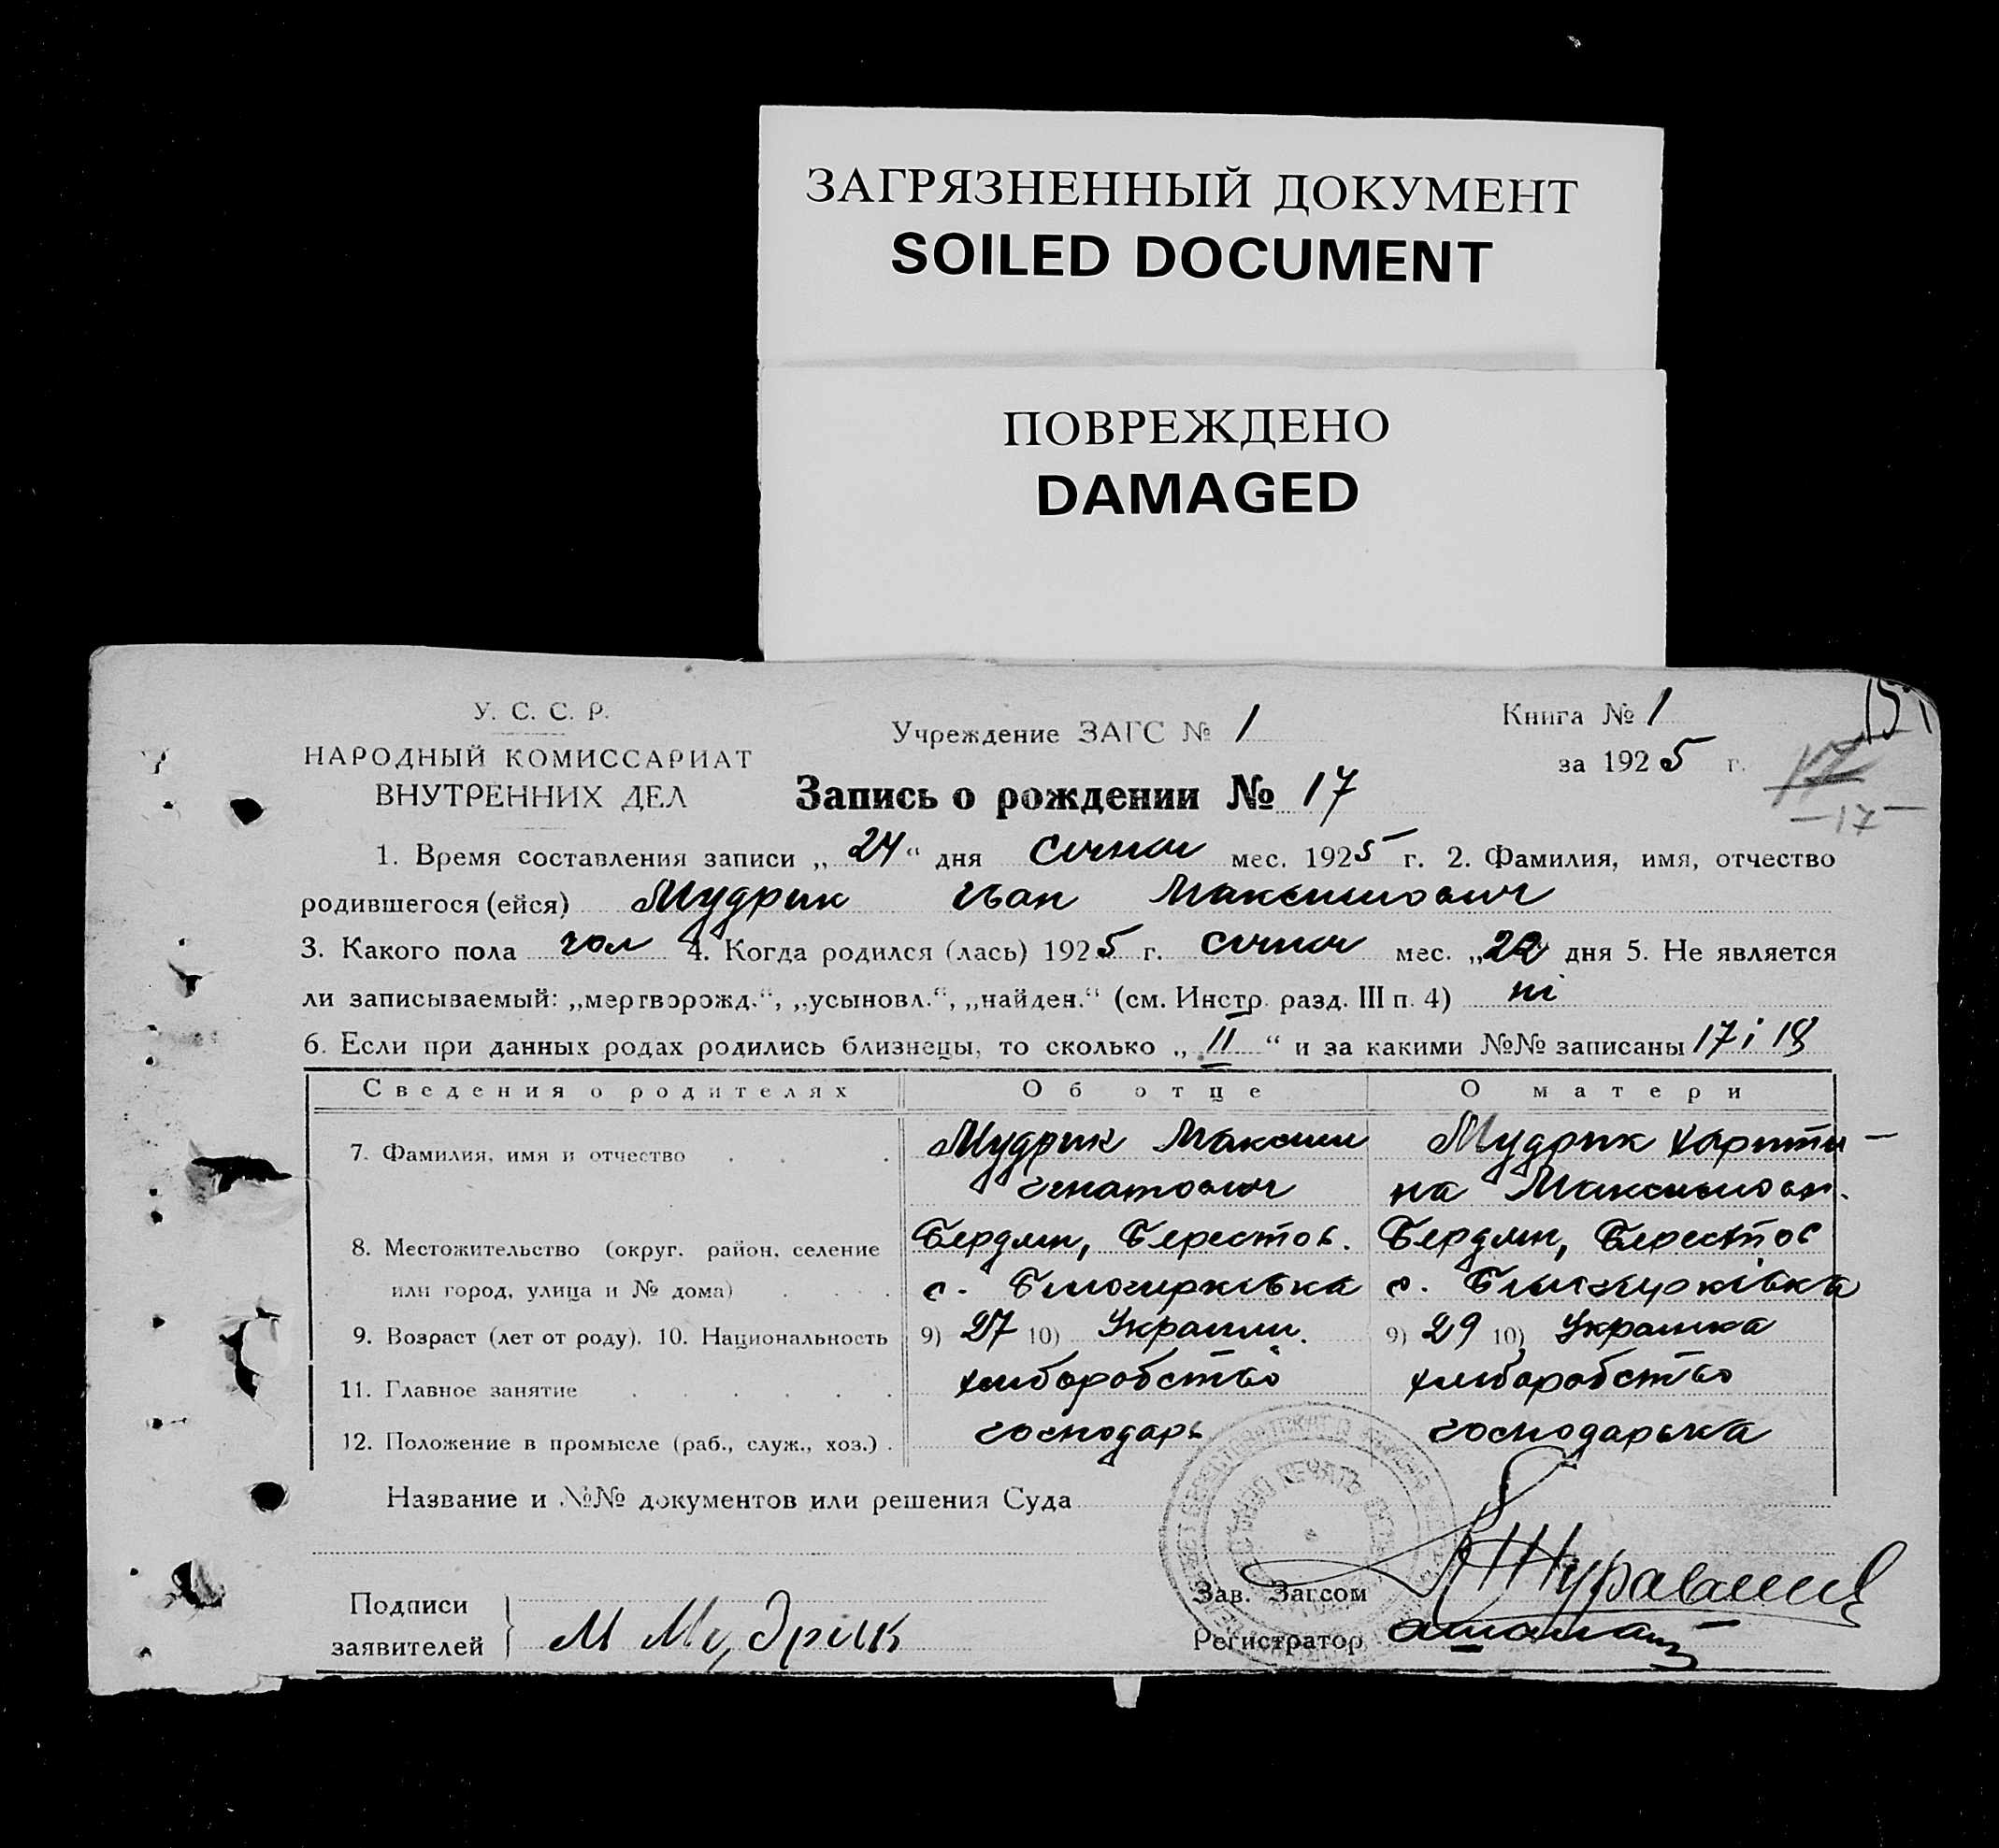 ЗАГРЯЗНЕННЫЙ ДОКУМЕНТ
SOILED DOCUMENT
ПОВРЕЖДЕНО
DAMAGED
У. С. С. Р.
НАРОДНЫЙ КОМИССАРИАТ
ВНУТРЕННИХ ДЕЛ
Учреждение ЗАГС № 1
Книга № 1
за 1925 г.
17
-17-
Запись о рождении № 17
1. Время составления записи „24“ дня січня мес. 1925 г. 2. Фамилия, имя, отчество
родившегося (ейся) Мудрик Іван Максимович
3. Какого пола чол 4. Когда родился (лась) 1925 г. січня мес. „ дня 5. Не является
ли записываемый: „мертворожд.“, „усыновл.“, „найден.“ (см. Инстр. разд. III п. 4) ні
6. Если при данных родах родились близнецы, то сколько „II“ и за какими №№ записаны 17 і 18
Сведения о родителях Об отце О матери
7. Фамилия, имя и отчество Мудрик Максим Мудрик Харити-
Гнатович на Максимовн.
8. Местожительство (округ, район, селение Бердян, Берестов. Бердян, Берестов
или город, улица и № дома) с. Білоцерківка с. Білоцерківка
9. Возраст (лет от роду). 10. Национальность 9) 27 10) Українн. 9) 29 10) Українка
11. Главное занятие хліборобство хліборобство
12. Положение в промысле (раб., служ., хоз.) господарь господарька
Название и №№ документов или решения Суда
Подписи
заявителей М Мудрик
Зав. Загсом
Регистратор